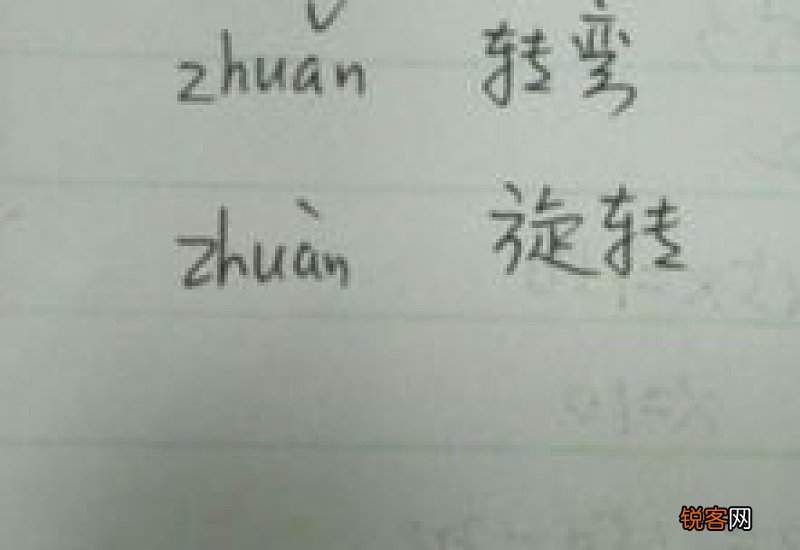 zhuǎn 转弯
zhuàn 旋转
锐客网